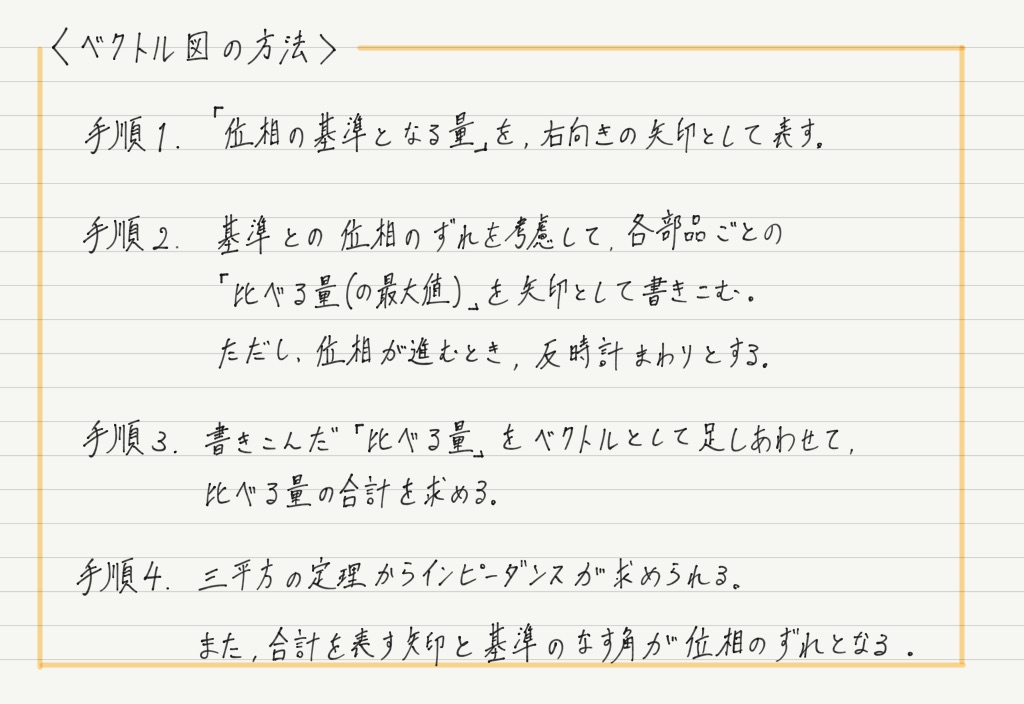 〈ベクトル図の方法〉
手順1. 「位相の基準となる量」を,右向きの矢印として表す。
手順2. 基準との位相のずれを考慮して,各部品ごとの
「比べる量(の最大値)」を矢印として書きこむ。
ただし、位相が進むとき,反時計まわりとする。
手順3. 書きこんだ「比べる量」をベクトルとして足しあわせて,
比べる量の合計を求める。
手順4. 三平方の定理からインピーダンスが求められる。
また,合計を表す矢印と基準のなす角が位相のずれとなる.